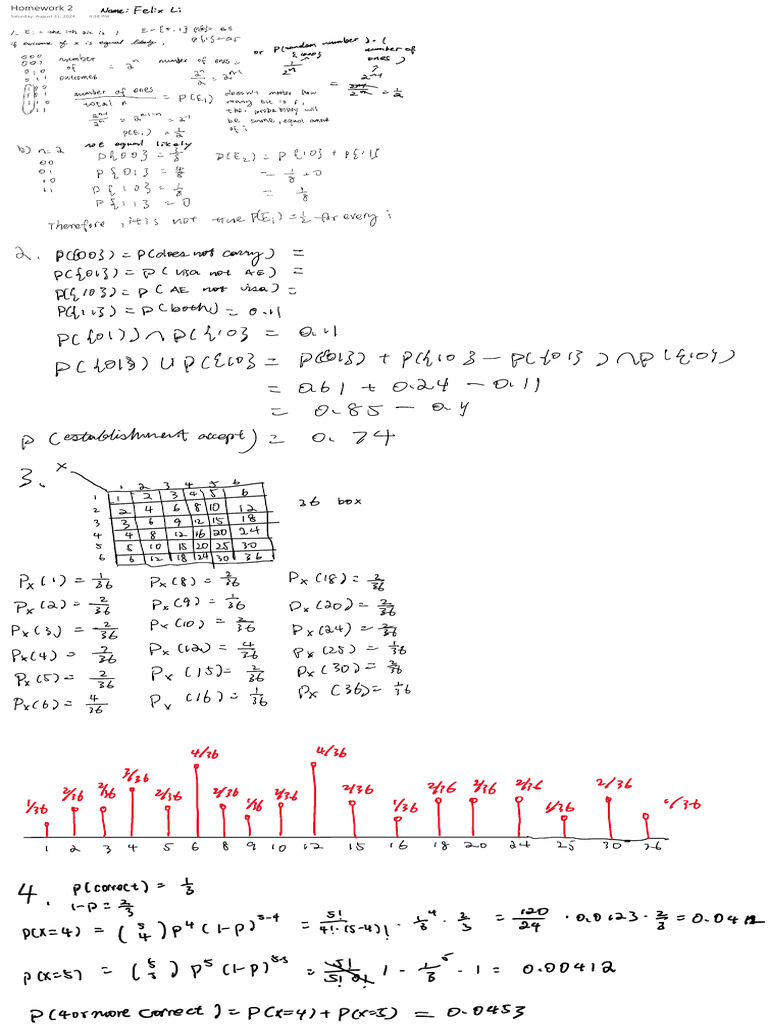 Homework 2
Name: Felix Li
Saturday, August 31, 2024 4:36 PM
if outcome of x is equal likely,
000
001
010
011
number of outcomes = 2^n
number of ones = 2^n/2 = 2^n-1
or P(random number) · (number of ones)
number of ones / total n = P(Ei)
doesn't matter how
many bit is i,
the probability will
be same, equal amount
of i
P(Ei) = 1/2
b) n=2 not equal likely
00 P{00} = 3/8 P(E2) = P{10} + P{11}
01 P{01} = 4/8 = 1/8 + 0
10 P{10} = 1/8 = 1/8
11 P{11} = 0
Therefore, it is not true P(Ei) = 1/2 for every i
2. P({00}) = P(does not carry) =
P({01}) = P(visa not AE) =
P({10}) = P(AE not visa) =
P({11}) = P(both) = 0.11
P({01}) ∩ P({10}) = 0.11
P({01}) ∪ P({10}) = P({01}) + P({10}) - P({01}) ∩ P({10})
= 0.61 + 0.24 - 0.11
= 0.85 - 0.11
P(establishment accept) = 0.74
3. x
1 2 3 4 5 6
1 1 2 3 4 5 6
2 2 4 6 8 10 12
3 3 6 9 12 15 18
4 4 8 12 16 20 24
5 5 10 15 20 25 30
6 6 12 18 24 30 36
36 box
Px(1) = 1/36 Px(8) = 2/36 Px(18) = 2/36
Px(2) = 2/36 Px(9) = 1/36 Px(20) = 2/36
Px(3) = 2/36 Px(10) = 2/36 Px(24) = 2/36
Px(4) = 3/36 Px(12) = 4/36 Px(25) = 1/36
Px(5) = 2/36 Px(15) = 2/36 Px(30) = 2/36
Px(6) = 4/36 Px(16) = 1/36 Px(36) = 1/36
1/36 2/36 2/36 3/36 2/36 4/36 2/36 1/36 2/36 4/36 2/36 1/36 2/36 2/36 2/36 1/36 2/36 1/36
1 2 3 4 5 6 8 9 10 12 15 16 18 20 24 25 30 36
4. P(correct) = 1/3
1-P = 2/3
P(X=4) = (5 4) P^4 (1-P)^5-4 = 5!/4!·(5-4)! · 1/3^4 · 2/3 = 120/24 · 0.0123 · 2/3 = 0.0412
P(X=5) = (5 5) P^5 (1-P)^5-5 = 5!/5!0! 1 · 1/3^5 · 1 = 0.00412
P(4 or more correct) = P(X=4) + P(X=5) = 0.0453